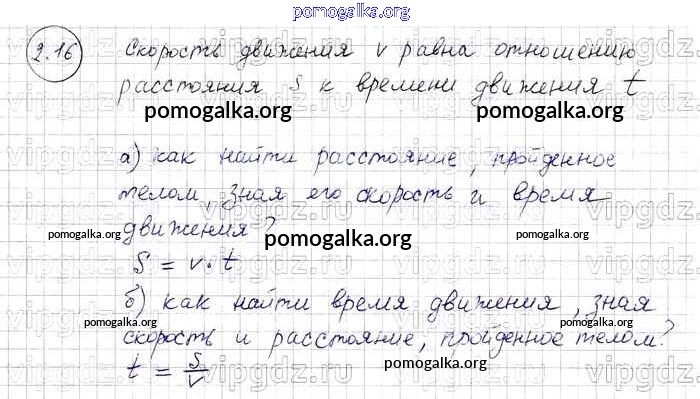 pomogalka.org
2.16 Скорость движения v равна отношению
расстояния s к времени движения t
pomogalka.org
а) как найти расстояние, пройденное
телом, зная его скорость и время
движения?
pomogalka.org
pomogalka.org
pomogalka.org
S = v · t
б) как найти время движения, зная
pomogalka.org
pomogalka.org
скорость и расстояние, пройденное телом?
pomogalka.org
t = s/v
vipgdz.ru